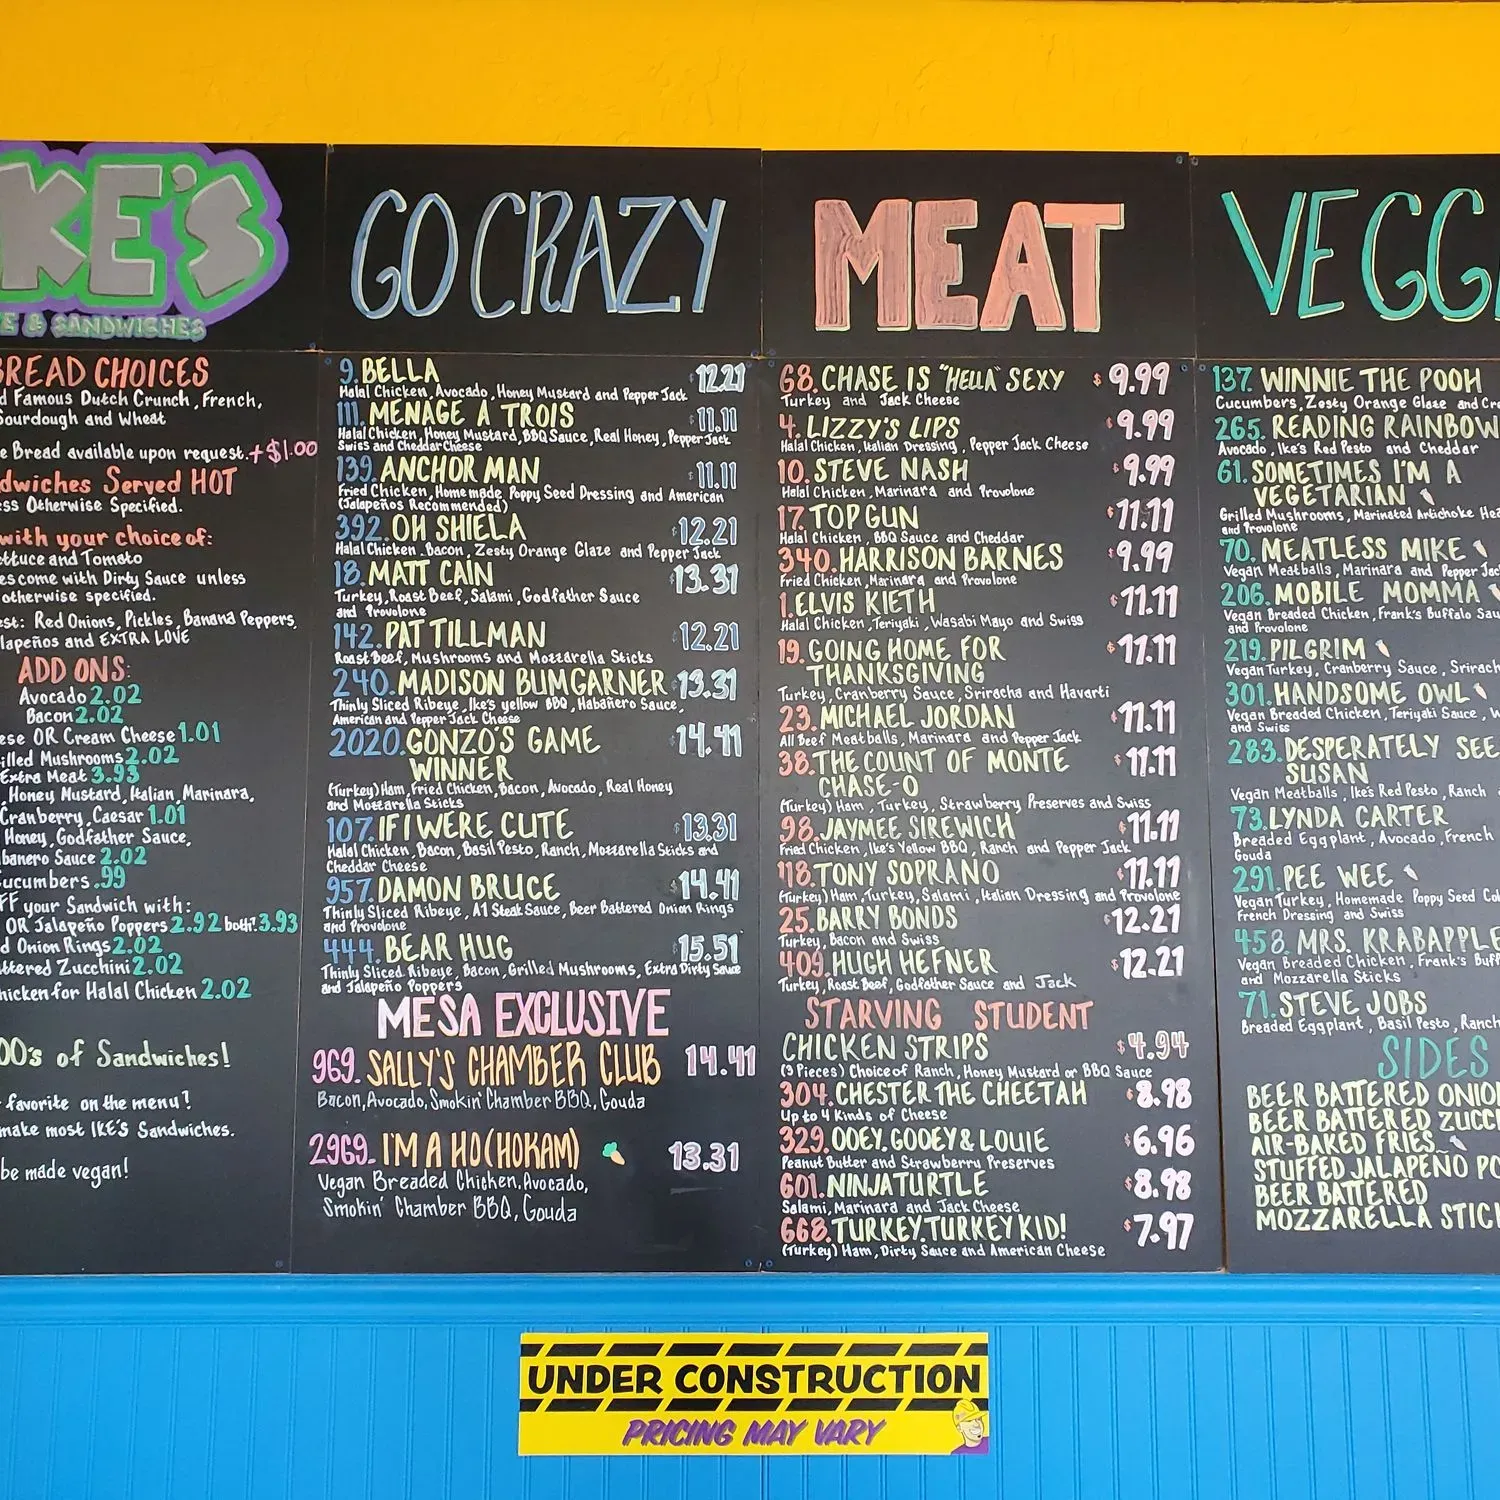 KE'S
E & SANDWICHES
BREAD CHOICES
d Famous Dutch Crunch, French,
Sourdough and Wheat
e Bread available upon request.+$1.00
dwiches Served HOT
ss Otherwise Specified.
with your choice of:
ettuce and Tomato
es come with Dirty Sauce unless
otherwise specified.
est: Red Onions, Pickles, Banana Peppers,
lapeños and EXTRA LOVE
ADD ONS:
Avocado 2.02
Bacon 2.02
ese OR Cream Cheese 1.01
illed Mushrooms 2.02
Extra Meat 3.93
, Honey Mustard, Italian, Marinara,
Cranberry, Caesar 1.01
Honey, Godfather Sauce,
banero Sauce 2.02
ucumbers .99
FF your Sandwich with:
OR Jalapeño Poppers 2.92 both?.3.93
d Onion Rings 2.02
ttered Zucchini 2.02
hicken for Halal Chicken 2.02
00's of Sandwiches!
favorite on the menu?
make most IKE'S Sandwiches.
be made vegan!
GO CRAZY
9. BELLA 12.21
Halal Chicken, Avocado, Honey Mustard and Pepper Jack
111. MENAGE A TROIS 11.11
Halal Chicken, Honey Mustard, BBQ Sauce, Real Honey, Pepper Jack
Swiss and Cheddar Cheese
139. ANCHOR MAN 11.11
Fried Chicken, Homemade Poppy Seed Dressing and American
(Jalapeños Recommended)
392. OH SHIELA 12.21
Halal Chicken, Bacon, Zesty Orange Glaze and Pepper Jack
18. MATT CAIN 13.31
Turkey, Roast Beef, Salami, Godfather Sauce
and Provolone
142. PAT TILLMAN 12.21
Roast Beef, Mushrooms and Mozzarella Sticks
240. MADISON BUMGARNER 13.31
Thinly Sliced Ribeye, Ike's yellow BBQ, Habañero Sauce,
American and Pepper Jack Cheese
2020. GONZO'S GAME 14.41
WINNER
(Turkey) Ham, Fried Chicken, Bacon, Avocado, Real Honey
and Mozzarella Sticks
107. IF I WERE CUTE 13.31
Halal Chicken, Bacon, Basil Pesto, Ranch, Mozzarella Sticks and
Cheddar Cheese
957. DAMON BRUCE 14.41
Thinly Sliced Ribeye, A1 Steak Sauce, Beer Battered Onion Rings
and Provolone
444. BEAR HUG 15.51
Thinly Sliced Ribeye, Bacon, Grilled Mushrooms, Extra Dirty Sauce
and Jalapeño Poppers
MESA EXCLUSIVE
969. SALLY'S CHAMBER CLUB 14.41
Bacon, Avocado, Smokin' Chamber BBQ, Gouda
2969. I'M A HO(HOKAM) 13.31
Vegan Breaded Chicken, Avocado,
Smokin' Chamber BBQ, Gouda
MEAT
68. CHASE IS "HELLA" SEXY $9.99
Turkey and Jack Cheese
4. LIZZY'S LIPS $9.99
Halal Chicken, Italian Dressing, Pepper Jack Cheese
10. STEVE NASH $9.99
Halal Chicken, Marinara and Provolone
17. TOP GUN $11.11
Halal Chicken, BBQ Sauce and Cheddar
340. HARRISON BARNES $9.99
Fried Chicken, Marinara and Provolone
1. ELVIS KIETH $11.11
Halal Chicken, Teriyaki, Wasabi Mayo and Swiss
19. GOING HOME FOR $11.11
THANKSGIVING
Turkey, Cranberry Sauce, Sriracha and Havarti
23. MICHAEL JORDAN $11.11
All Beef Meatballs, Marinara and Pepper Jack
38. THE COUNT OF MONTE $11.11
CHASE-O
(Turkey) Ham, Turkey, Strawberry Preserves and Swiss
98. JAYMEE SIREWICH $11.11
Fried Chicken, Ike's Yellow BBQ, Ranch and Pepper Jack
118. TONY SOPRANO $11.11
(Turkey) Ham, Turkey, Salami, Italian Dressing and Provolone
25. BARRY BONDS $12.21
Turkey, Bacon and Swiss
409. HUGH HEFNER $12.21
Turkey, Roast Beef, Godfather Sauce and Jack
STARVING STUDENT
CHICKEN STRIPS $4.94
(3 Pieces) Choice of Ranch, Honey Mustard or BBQ Sauce
304. CHESTER THE CHEETAH $8.98
Up to 4 Kinds of Cheese
329. OOEY, GOOEY & LOUIE $6.96
Peanut Butter and Strawberry Preserves
601. NINJA TURTLE $8.98
Salami, Marinara and Jack Cheese
668. TURKEY, TURKEY KID! $7.97
(Turkey) Ham, Dirty Sauce and American Cheese
VEGG
137. WINNIE THE POOH
Cucumbers, Zesty Orange Glaze and Cre
265. READING RAINBOW
Avocado, Ike's Red Pesto and Cheddar
61. SOMETIMES I'M A
VEGETARIAN
Grilled Mushrooms, Marinated Artichoke Hea
and Provolone
70. MEATLESS MIKE
Vegan Meatballs, Marinara and Pepper Jac
206. MOBILE MOMMA
Vegan Breaded Chicken, Frank's Buffalo Sau
and Provolone
219. PILGRIM
Vegan Turkey, Cranberry Sauce, Srirach
301. HANDSOME OWL
Vegan Breaded Chicken, Teriyaki Sauce, W
and Swiss
283. DESPERATELY SEE
SUSAN
Vegan Meatballs, Ike's Red Pesto, Ranch
73. LYNDA CARTER
Breaded Eggplant, Avocado, French
Gouda
291. PEE WEE
Vegan Turkey, Homemade Poppy Seed Col
French Dressing and Swiss
458. MRS. KRABAPPLE
Vegan Breaded Chicken, Frank's Buff
and Mozzarella Sticks
71. STEVE JOBS
Breaded Eggplant, Basil Pesto, Ranch
SIDES
BEER BATTERED ONIO
BEER BATTERED ZUCC
AIR-BAKED FRIES
STUFFED JALAPEÑO PO
BEER BATTERED
MOZZARELLA STIC
UNDER CONSTRUCTION
PRICING MAY VARY